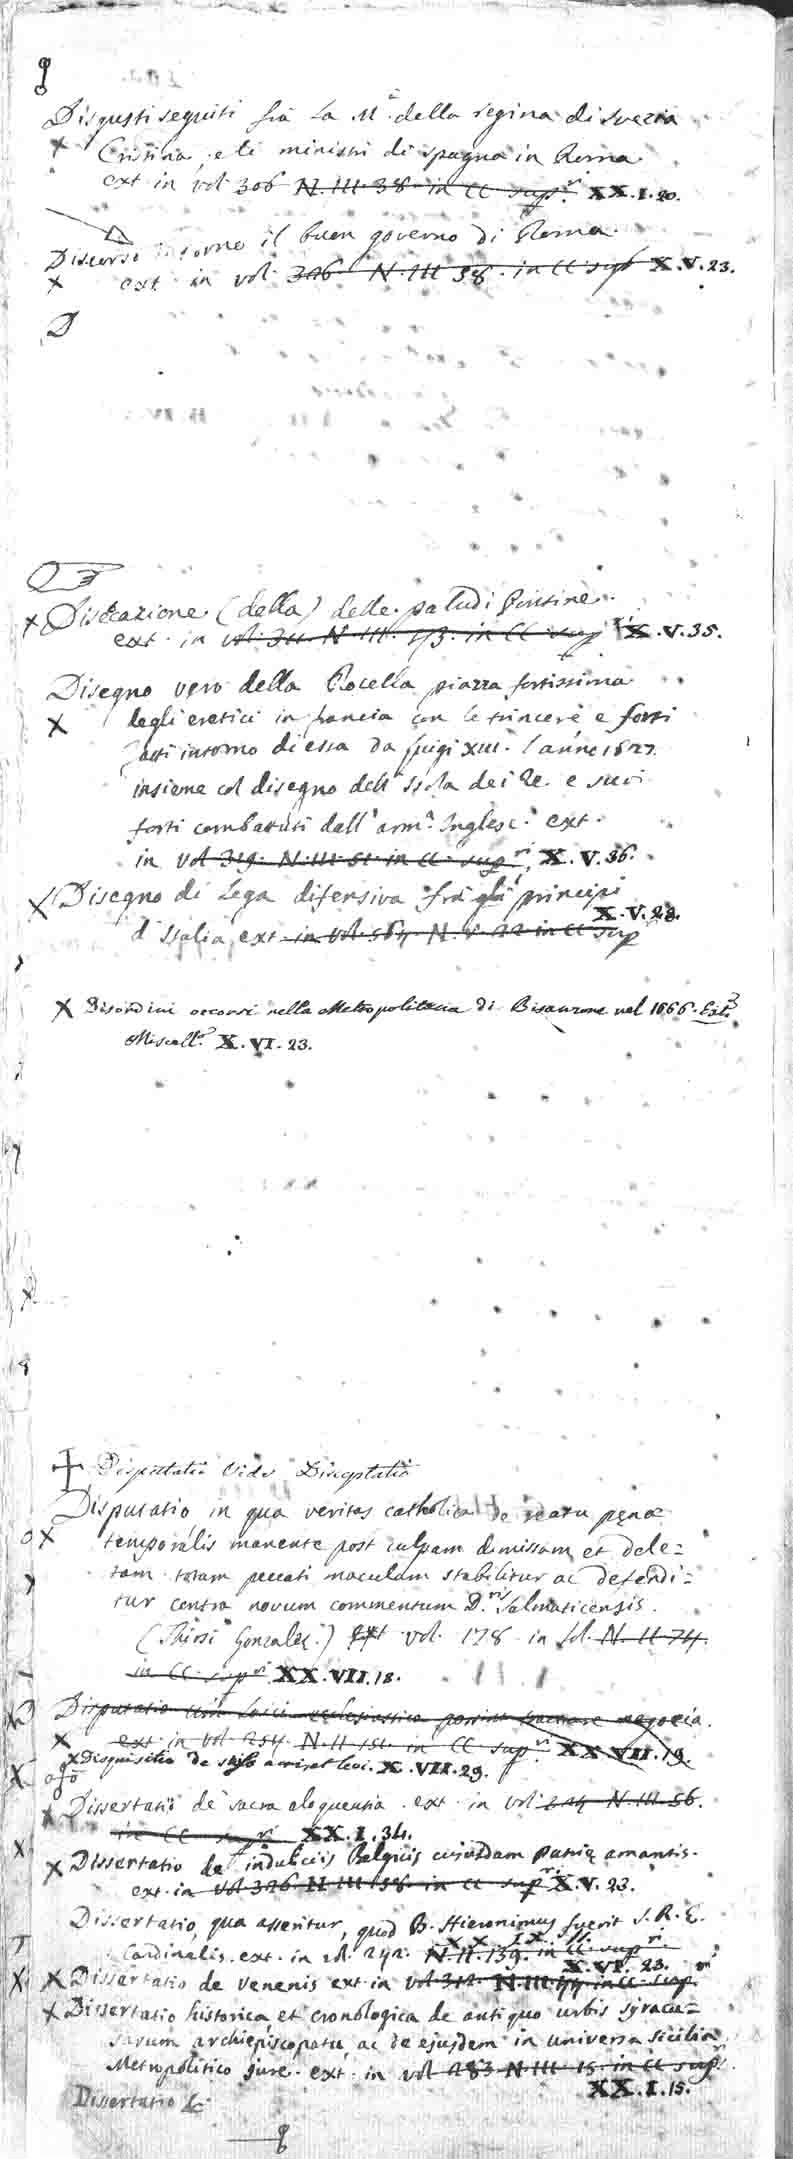 Disgusti seguiti frà la M.à della regina di Suezia
X Cristina, e li ministri di spagna in Roma
ext in vol 306 N. III. 38 in CC sup.ri XX.I.20.
Discorso intorno il buon governo di Roma.
X ext. in vol. 326. N. III 58. in CC sup X.V.23.
D
X Diseccazione (della) delle paludi Pontine.
ext. in vol. 311. N. III. 43. in CC sup X.V.35.
Disegno vero della Rocella piazza fortissima
X degli eretici in francia con le trincere e forti
fatti intorno di essa da luigi XIII. l'anno 1627.
insieme col disegno dell'Isola dei Re. e suoi
forti combattuti dall'arm.a Inglese. ext.
in vol 319. N. III. 51. in CC. sup.ri X.V.36.
X Disegno di Lega difensiva frà gli principi
X.V.28.
d'Italia ext in vol. 564 N. V. 22 in CC sup
X Disordini occorsi nella Metropolitana di Bisanzone nel 1666.
Miscell. X.VI.23.
Disputatio Vide Disceptatio
Disputatio in qua veritas catholica de reatu pęnæ
X temporalis manente post culpam dimissam et dele=
tam totam peccati maculam stabilitur ac defendi=
tur contra novum commentum D.ris Salmaticensis.
(Thirsi Gonzalez.) ext vol. 178 in fol. N. II 74.
in CC. sup.ri XX.VII.18.
Disputatio ecclesiastica possint tractare negocia.
X ext in vol 254. N. II 151. in CC sup.ri XX VII.19.
X Disquisitio de X.VII.29.
X Dissertatio de sacra eloquentia ext. in vol N. III. 56.
in CC sup.ri XX.I.34.
X Dissertatio de induciis Belgicis cuiusdam patrię amantis.
ext. in vol 326. N III 58. in CC sup.ri X.V.23.
Dissertatio, qua asseritur, quod B. Hieronimus fuerit S.R.E.
Cardinalis. ext. in vol. 242. N. II. 139. in CC. sup.ri
X.VI.23.
X Dissertatio de venenis ext in vol 312. N. III 44 in CC sup.ri
X Dissertatio historica et cronologica de antiquo urbis syracu=
sarum archiepiscopatu, ac de ejusdem in universa sicilia
Metropolitico jure. ext. in vol 283 N III 15 in CC sup.
XX.I.15.
Dissertatio